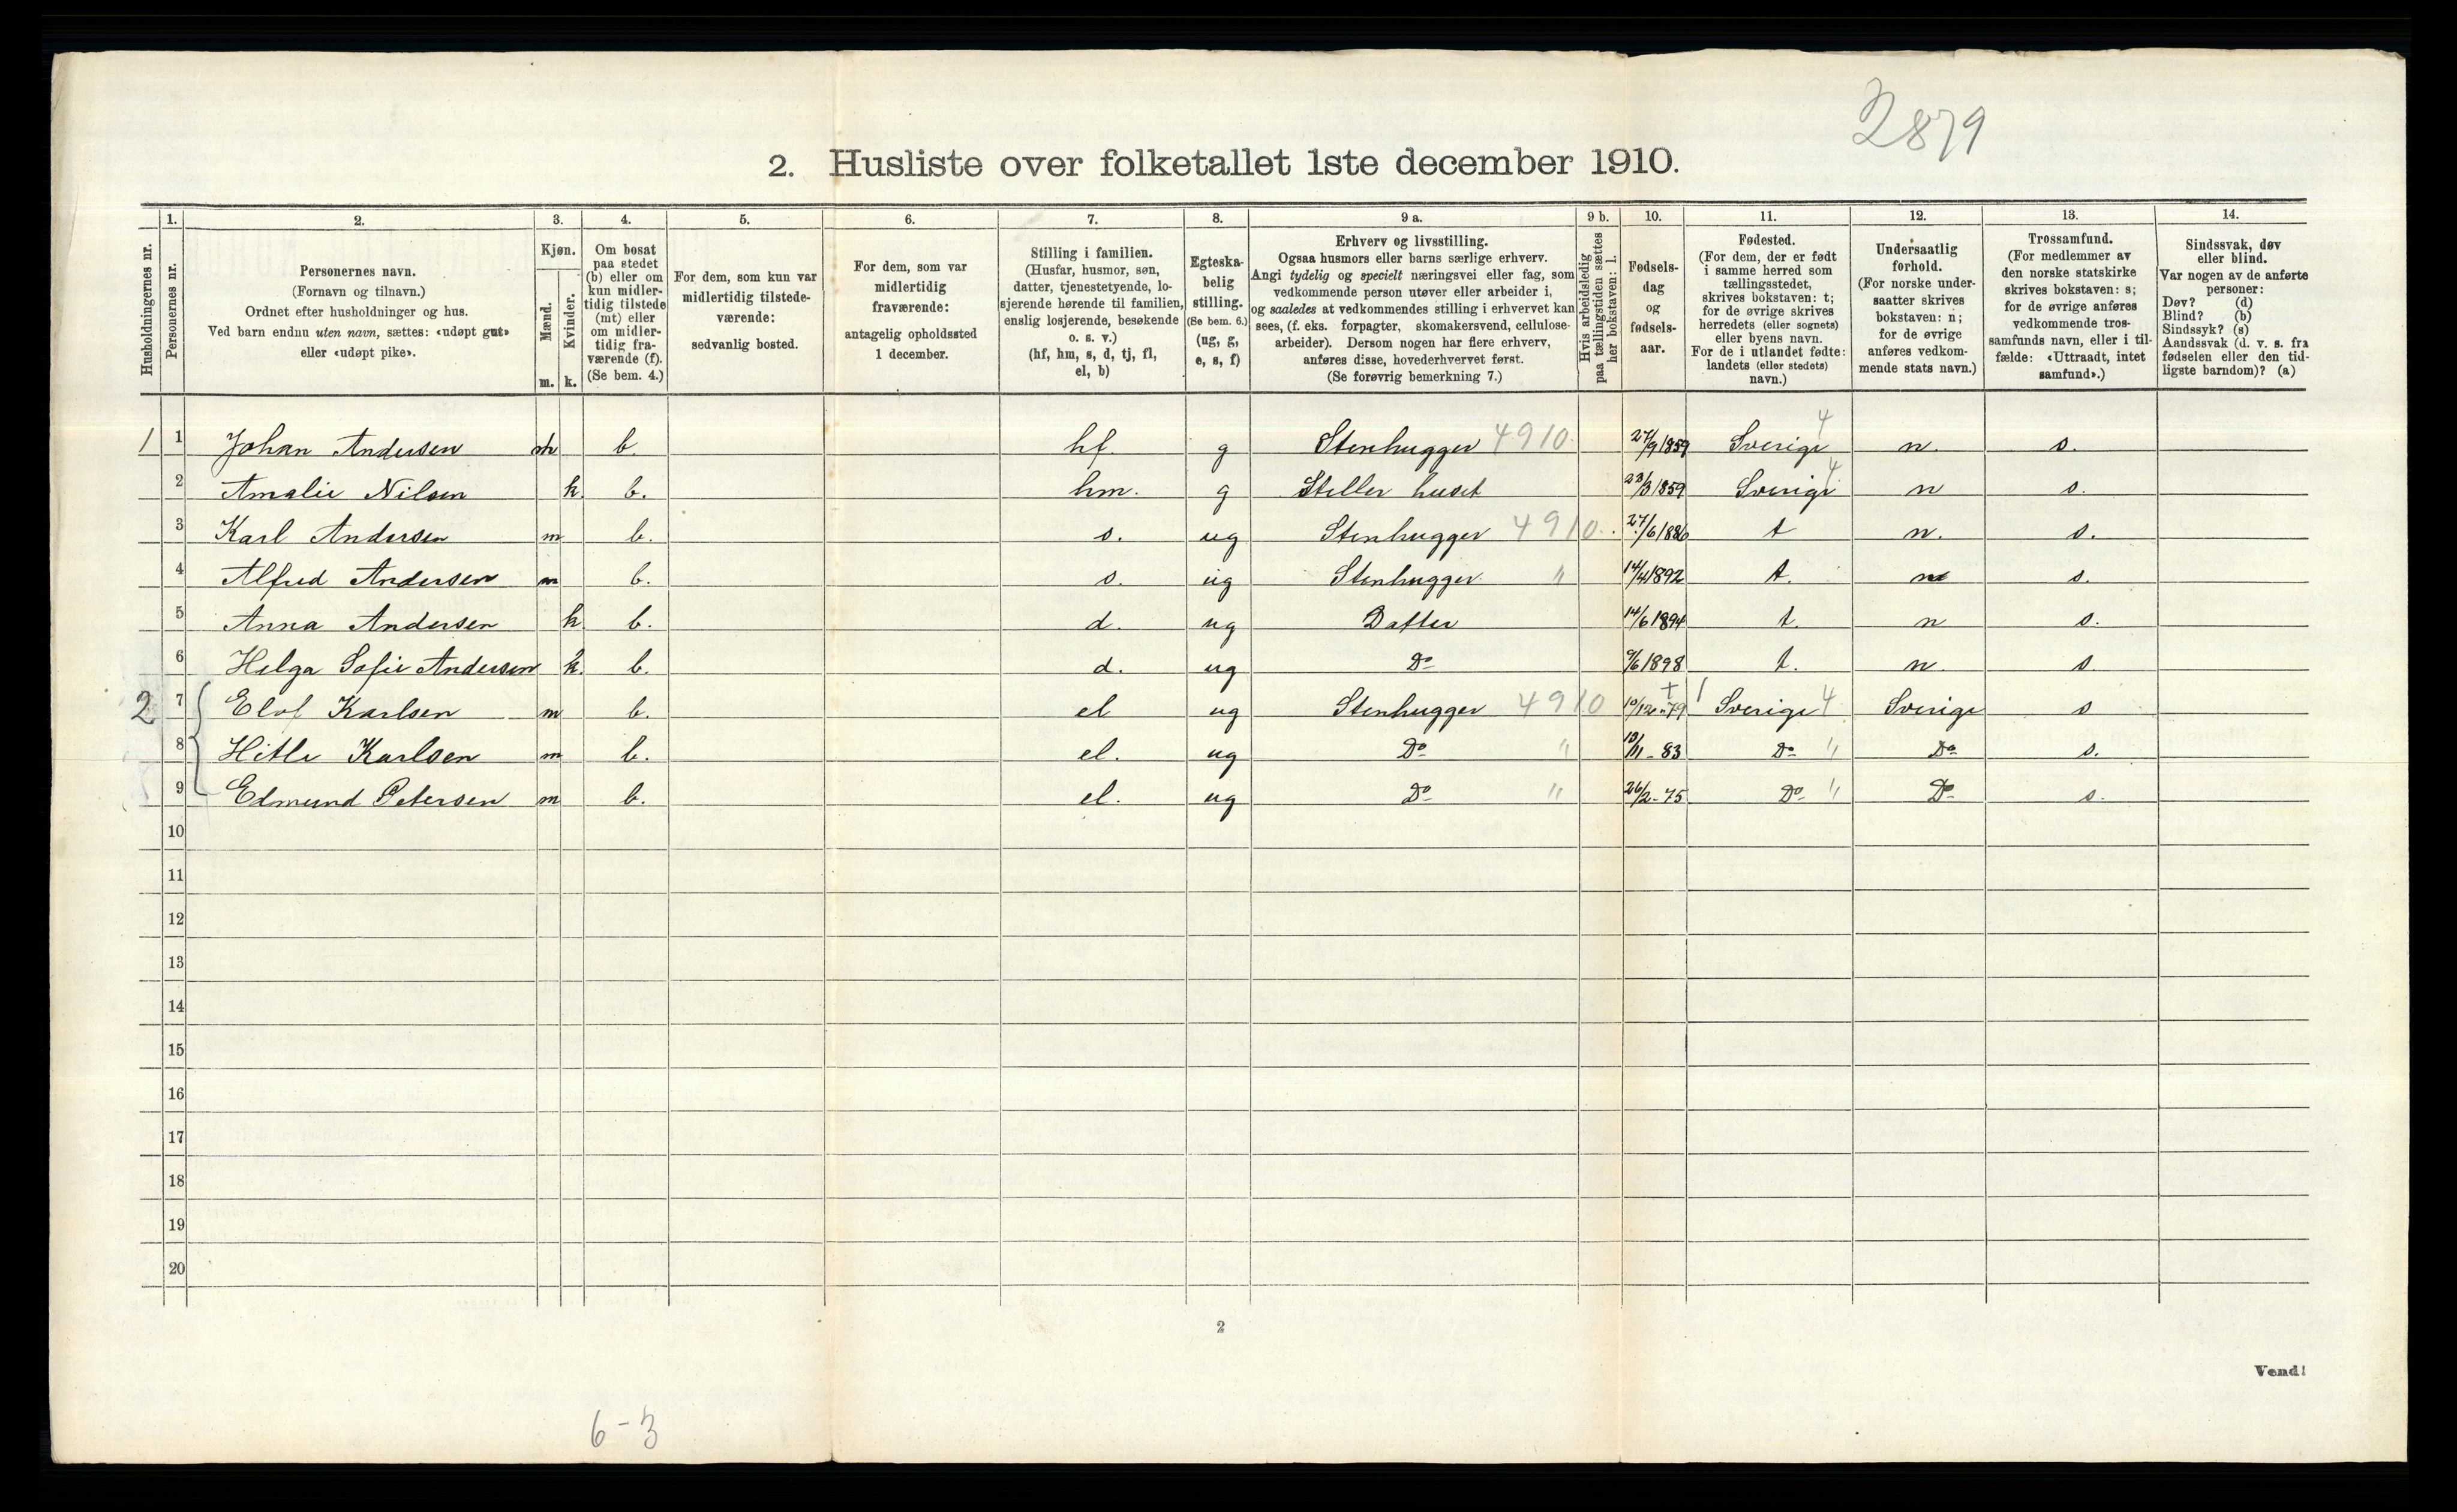 2879
2. Husliste over folketallet 1ste december 1910.
Husholdningernes nr.
1.
Personernes nr.
2.
Personernes navn.
(Fornavn og tilnavn.)
Ordnet efter husholdninger og hus.
Ved barn endnu uten navn, sættes: «udøpt gut»
eller «udøpt pike».
3.
Kjøn.
Mænd.
m.
Kvinder.
k.
4.
Om bosat
paa stedet
(b) eller om
kun midler-
tidig tilstede
(mt) eller
om midler-
tidig fra-
værende (f).
(Se bem. 4.)
5.
For dem, som kun var
midlertidig tilstede-
værende:
sedvanlig bosted.
6.
For dem, som var
midlertidig
fraværende:
antagelig opholdssted
1 december.
7.
Stilling i familien.
(Husfar, husmor, søn,
datter, tjenestetyende, lo-
sjerende hørende til familien,
enslig losjerende, besøkende
o. s. v.)
(hf, hm, s, d, tj, fl,
el, b)
8.
Egteska-
belig
stilling.
(Se bem. 6.)
(ug, g,
e, s, f)
9 a.
Erhverv og livsstilling.
Ogsaa husmors eller barns særlige erhverv.
Angi tydelig og specielt næringsvei eller fag, som
vedkommende person utøver eller arbeider i,
og saaledes at vedkommendes stilling i erhvervet kan
sees, (f. eks. forpagter, skomakersvend, cellulose-
arbeider). Dersom nogen har flere erhverv,
anføres disse, hovederhvervet først.
(Se forøvrig bemerkning 7.)
9 b.
Hvis arbeidsledig
paa tællingstiden sættes
her bokstaven: l.
10.
Fødsels-
dag
og
fødsels-
aar.
11.
Fødested.
(For dem, der er født
i samme herred som
tællingsstedet,
skrives bokstaven: t;
for de øvrige skrives
herredets (eller sognets)
eller byens navn.
For de i utlandet fødte:
landets (eller stedets)
navn.)
12.
Undersaatlig
forhold.
(For norske under-
saatter skrives
bokstaven: n;
for de øvrige
anføres vedkom-
mende stats navn.)
13.
Trossamfund.
(For medlemmer av
den norske statskirke
skrives bokstaven: s;
for de øvrige anføres
vedkommende tros-
samfunds navn, eller i til-
fælde: «Uttraadt, intet
samfund».)
14.
Sindssvak, døv
eller blind.
Var nogen av de anførte
personer:
Døv? (d)
Blind? (b)
Sindssyk? (s)
Aandssvak (d. v. s. fra
fødselen eller den tid-
ligste barndom)? (a)
1 1 Johan Andersen m b. hf. g Stenhugger 4910 27/9 1859 Sverige 4 n. s.
2 Amalie Nilsen k. b. hm. g Steller huset 23/3 1859 Sverige 4 n s.
3 Karl Andersen m b. s. ug Stenhugger 4910 27/6 1886 t n. s.
4 Alfred Andersen m b. s. ug Stenhugger " 14/4 1892 t. n s.
5 Anna Andersen k. b. d. ug Datter 14/6 1894 t. n s.
6 Helga Sofie Andersen k. b. d. ug Do 9/6 1898 t. n. s
2 7 Elof Karlsen m b. el ug Stenhugger 4910 10/12-79 Sverige 4 Sverige s
8 Hitle Karlsen m b. el. ug Do " 13/11-83 Do " Do s.
9 Edmund Petersen m b. el. ug Do " 26/2-75 Do " Do s.
10
11
12
13
14
15
16
17
18
19
20
2
Vend!
6-3